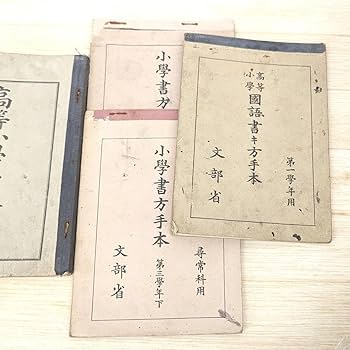 高等小學
小學書方
高等
小學
國語書キ方手本
第一學年用
文部省
小學書方手本
尋常科用
第三學年下
文部省